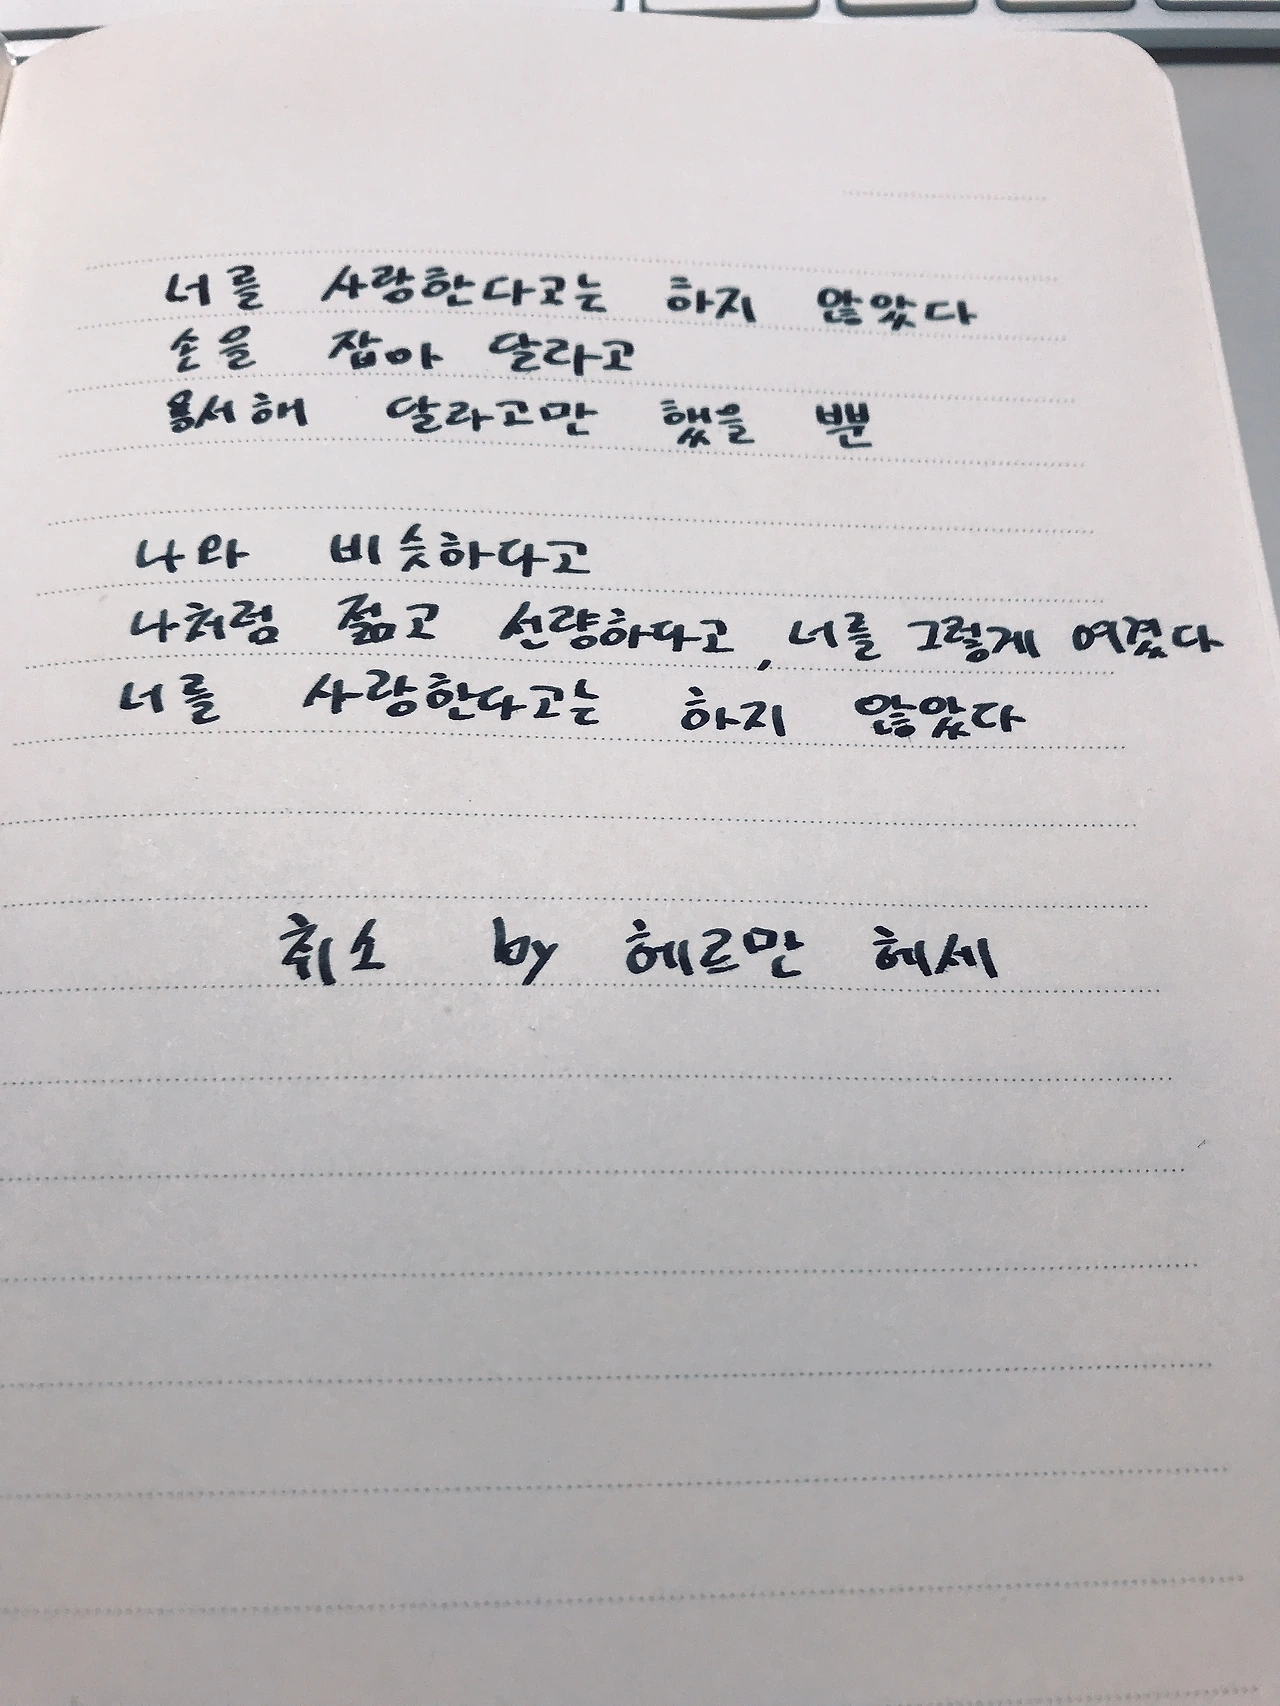 너를 사랑한다고는 하지 않았다
손을 잡아 달라고
용서해 달라고만 했을 뿐
나와 비슷하다고
나처럼 젊고 선량하다고, 너를 그렇게 여겼다
너를 사랑한다고는 하지 않았다
취소 by 헤르만 헤세